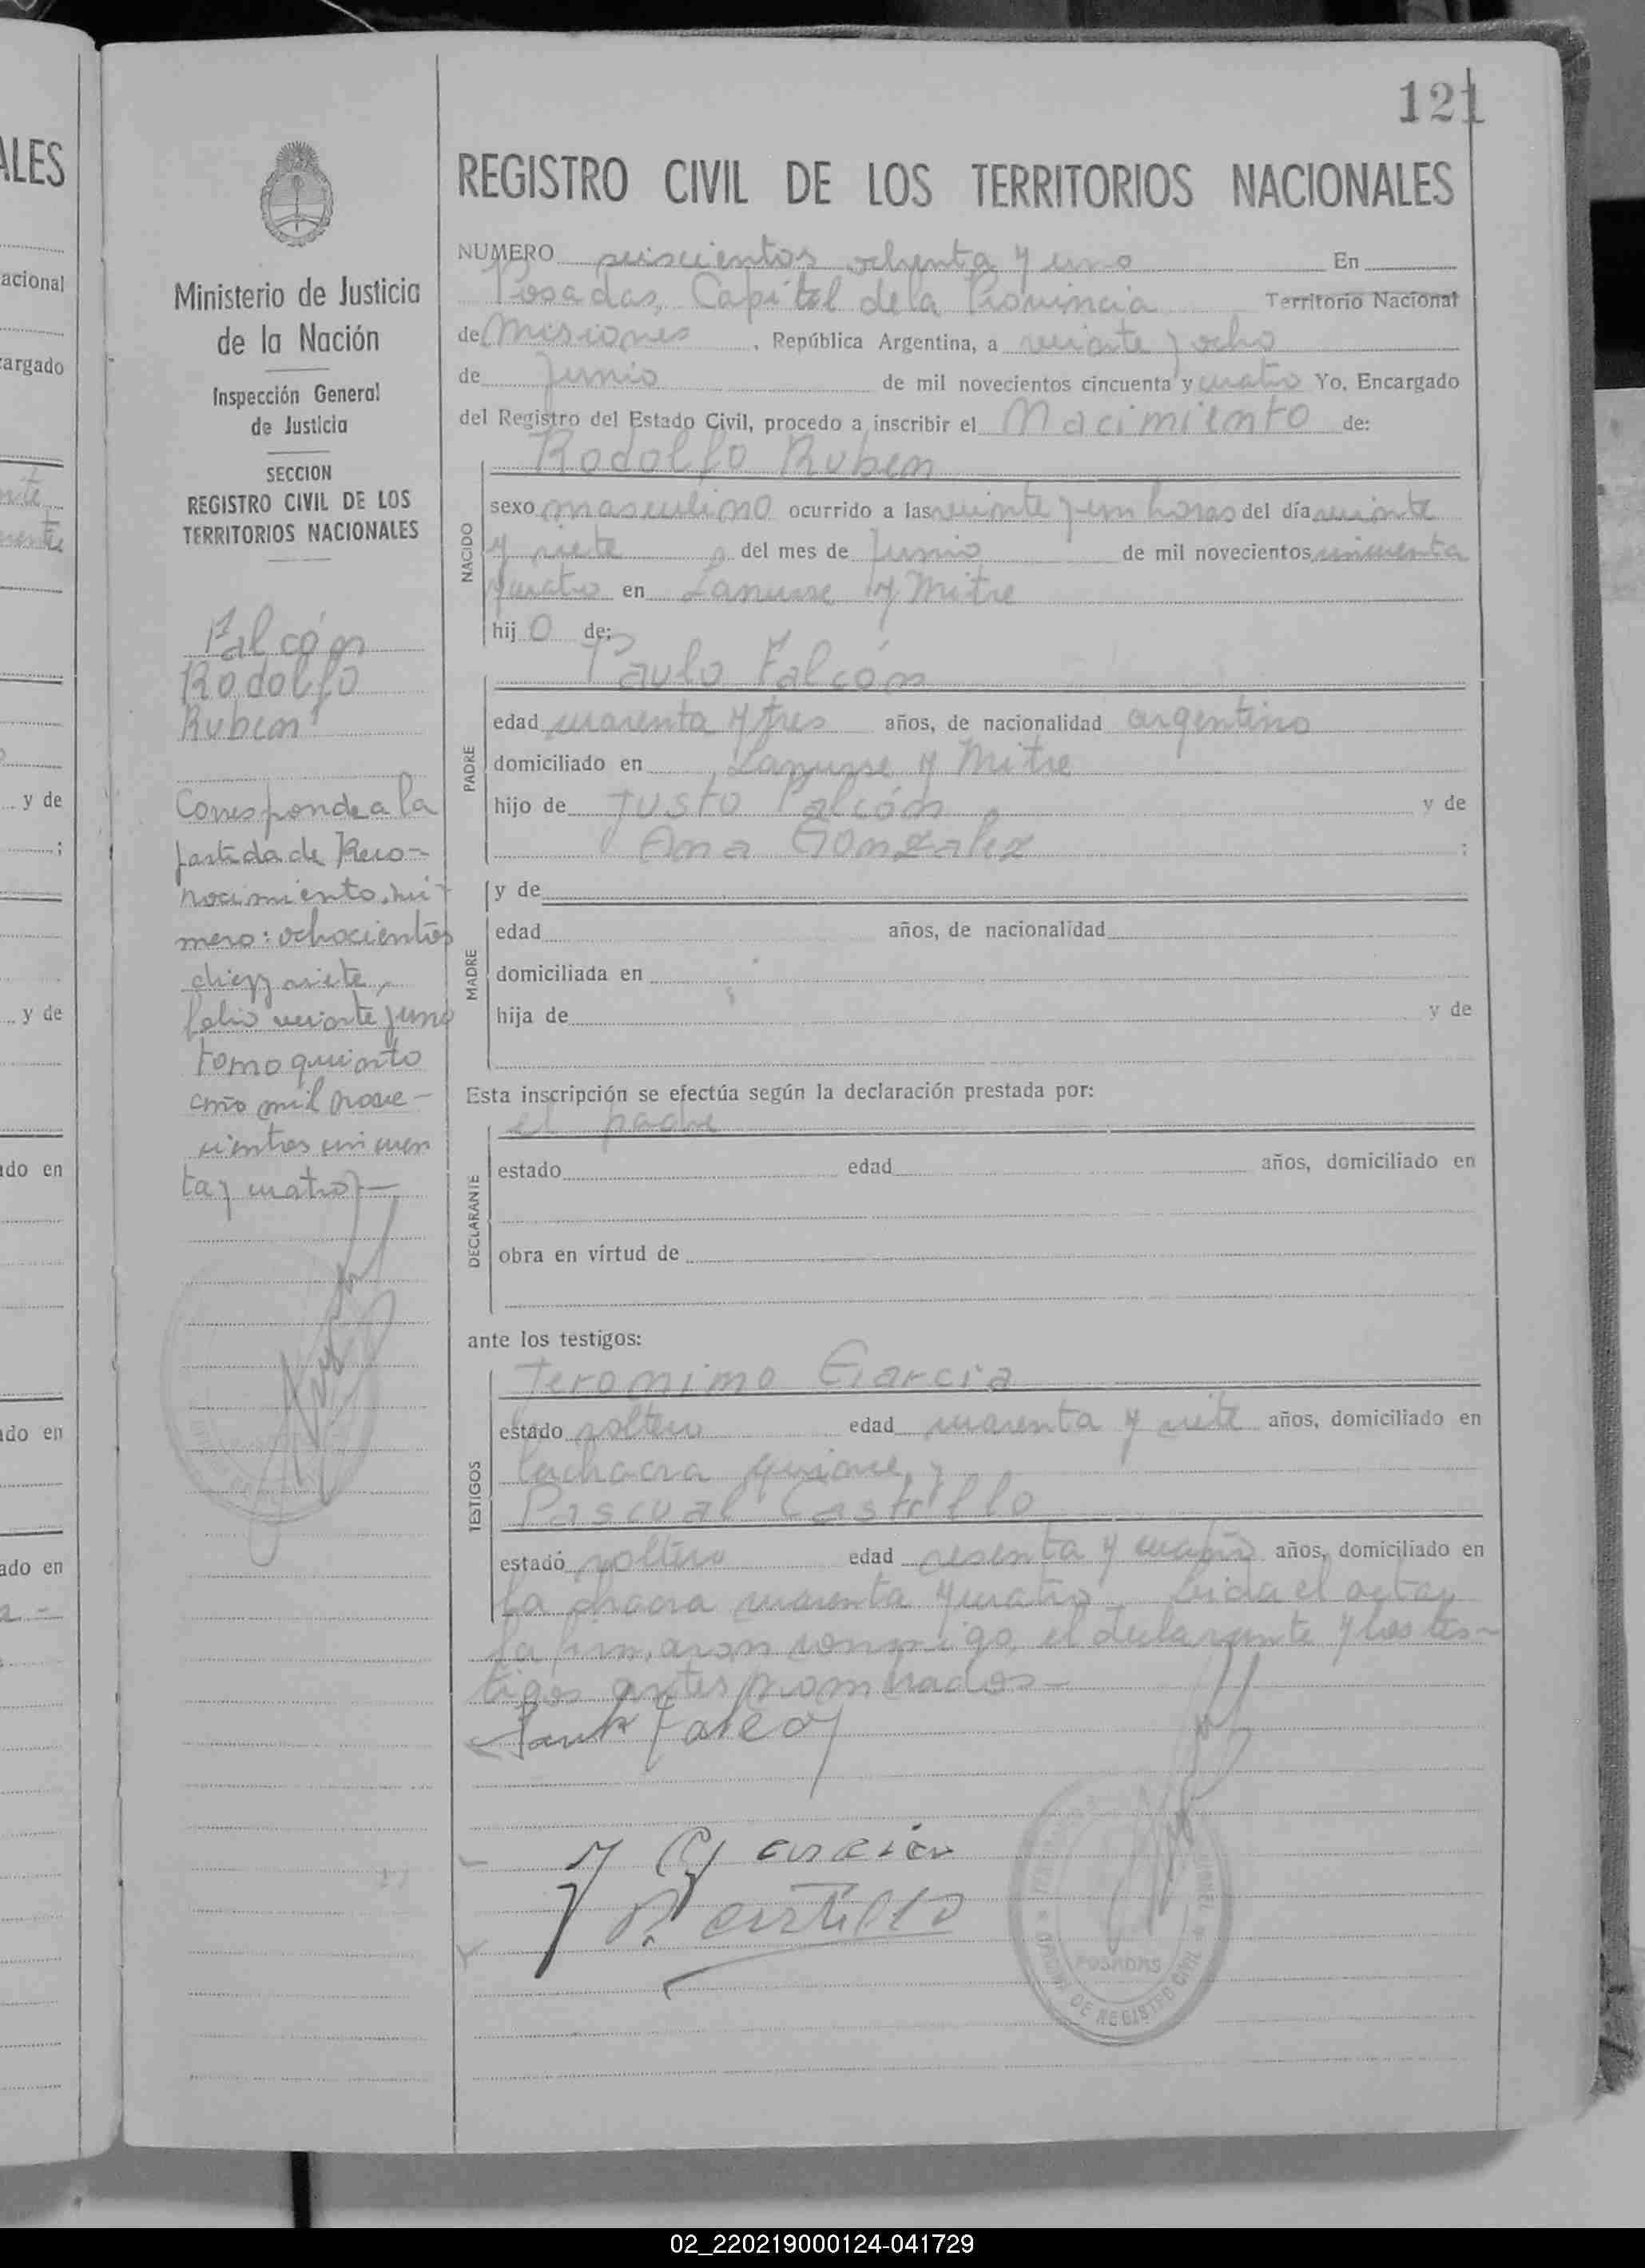 121
REGISTRO CIVIL DE LOS TERRITORIOS NACIONALES
NUMERO seiscientos ochenta y uno En
Posadas, Capital de la Provincia Territorio Nacional
de Misiones, República Argentina, a veinte y ocho
de Junio de mil novecientos cincuenta y cuatro Yo, Encargado
del Registro del Estado Civil, procedo a inscribir el Nacimiento de:
Rodolfo Ruben
NACIDO
sexo masculino ocurrido a las veinte y un horas del día veinte
y siete del mes de Junio de mil novecientos cincuenta
y cuatro en Lanusse y Mitre
hij o de:
Paulo Falcón
PADRE
edad cuarenta y tres años, de nacionalidad argentino
domiciliado en Lanusse y Mitre
hijo de Justo Falcón y de
Ana Gonzalez ;
MADRE
y de
edad años, de nacionalidad
domiciliada en
hija de y de
Esta inscripción se efectúa según la declaración prestada por:
el padre
DECLARANTE
estado edad años, domiciliado en
obra en virtud de
ante los testigos:
Jeronimo Garcia
TESTIGOS
estado soltero edad cuarenta y siete años, domiciliado en
la chacra quince, y
Pascual Castillo
estado soltero edad sesenta y cuatro años, domiciliado en
la chacra cuarenta y cuatro Leida el acta
la firmaron conmigo, el declarante y los tes-
tigos antes nombrados-
J Garcia
P. Castillo
POSADAS
OFICINA DE REGISTRO CIVIL
Ministerio de Justicia
de la Nación
Inspección General
de Justicia
SECCION
REGISTRO CIVIL DE LOS
TERRITORIOS NACIONALES
Falcón
Rodolfo
Ruben
Corresponde a la
partida de Reco-
nocimiento, nú-
mero: ochocientos
diez y siete,
folio veinte y uno
tomo quinto
año mil nove-
cientos cincuen
ta y cuatro-
ALES
acional
cargado
y de
;
y de
ado en
ado en
ado en
02_220219000124-041729